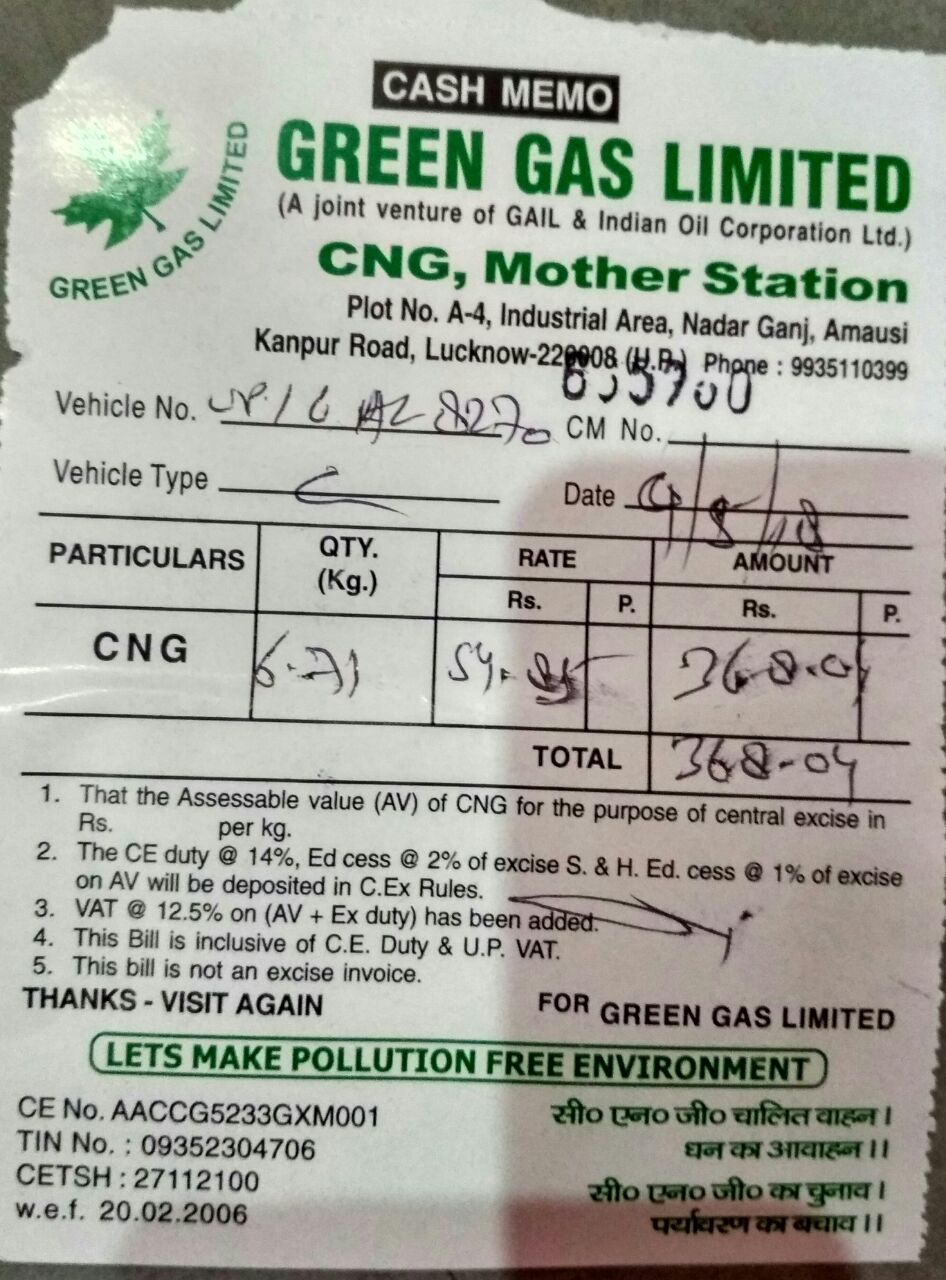 CASH MEMO
GREEN GAS LIMITED
GREEN GAS LIMITED
(A joint venture of GAIL & Indian Oil Corporation Ltd.)
CNG, Mother Station
Plot No. A-4, Industrial Area, Nadar Ganj, Amausi
Kanpur Road, Lucknow-226008 (U.P.) Phone : 9935110399
Vehicle No. 8270 CM No.
Vehicle Type C Date
PARTICULARS QTY. (Kg.) RATE AMOUNT
Rs. P. Rs. P.
CNG 6-71 54. 368.04
TOTAL 368-04
1. That the Assessable value (AV) of CNG for the purpose of central excise in
Rs. per kg.
2. The CE duty @ 14%, Ed cess @ 2% of excise S. & H. Ed. cess @ 1% of excise
on AV will be deposited in C.Ex Rules.
3. VAT @ 12.5% on (AV + Ex duty) has been added.
4. This Bill is inclusive of C.E. Duty & U.P. VAT.
5. This bill is not an excise invoice.
THANKS - VISIT AGAIN FOR GREEN GAS LIMITED
LETS MAKE POLLUTION FREE ENVIRONMENT
CE No. AACCG5233GXM001 सी० एन० जी० चालित वाहन ।
TIN No. : 09352304706 धन का आवाहन ।।
CETSH : 27112100 सी० एन० जी० का चुनाव ।
w.e.f. 20.02.2006 पर्यावरण का बचाव ।।